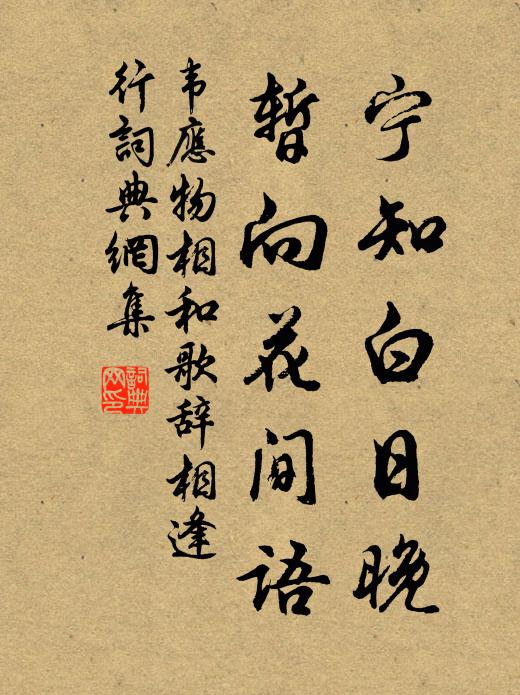 宁知白日晚
暫向花间語
韦應物相和歌辞相逢
行詞典網集
詞典网印